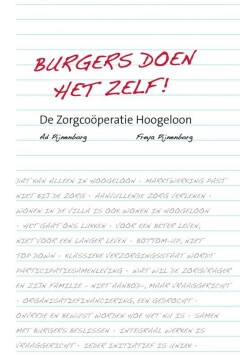 BURGERS DOEN
HET ZELF!
De Zorgcoöperatie Hoogeloon
Ad Pijnenborg Freya Pijnenborg
DAT KAN ALLEEN IN HOOGELOON - MARKTWERKING PAST
NIET BIJ DE ZORG - AANVULLENDE ZORG VERLENEN -
WONEN IN DE VILLA IS OOK WONEN IN HOOGELOON
- HET GAAT ONS LUKKEN - VOOR EEN BETER LEVEN,
NIET VOOR EEN LANGER LEVEN - BOTTOM-UP, NIET
TOP DOWN - KLASSIEKE VERZORGINGSSTAAT WORDT
PARTICIPATIESAMENLEVING - WAT WIL DE ZORGVRAGER
EN ZIJN FAMILIE - NIET AANBOD-, MAAR VRAAGGERICHT
- ORGANISATIEFINANCIERING, EEN GEDROCHT -
ONVREDE EN BEWUST WORDEN HOE HET NU IS - SAMEN
MET BURGERS BESLISSEN - INTEGRAAL WERKEN IS
VRAAGGERICHT - IEDER INITIATIEF IS UNIEK -